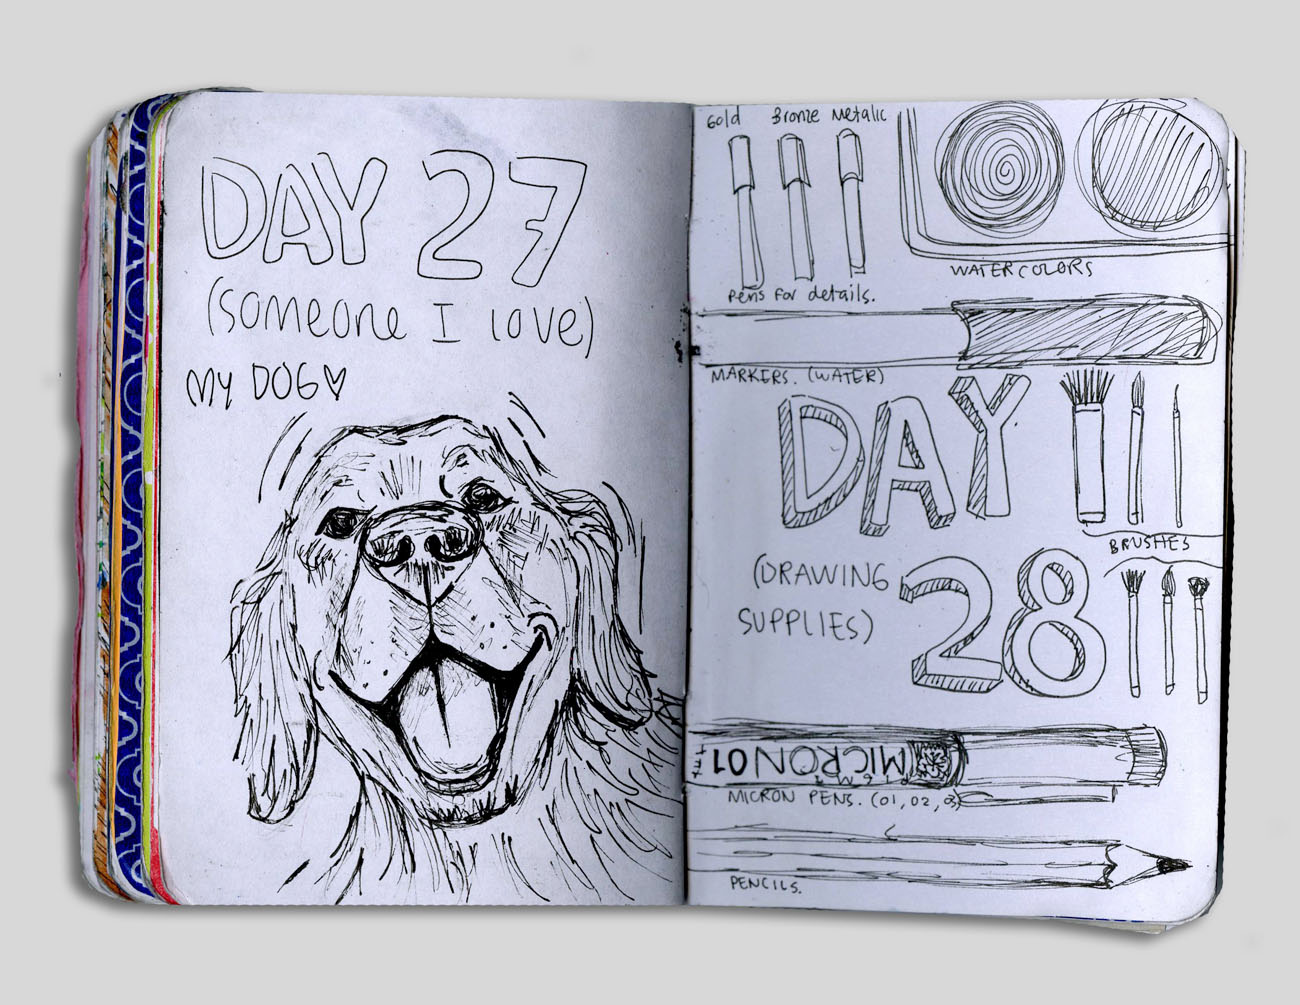 DAY 27
(Someone I love)
My DOG♡
Gold Bronze Metalic
Pens for details.
WATERCOLORS
MARKERS. (WATER)
DAY
28
(DRAWING
SUPPLIES)
BRUSHES
MICRON 01
MICRON PENS. (01, 02, 03)
PENCILS.